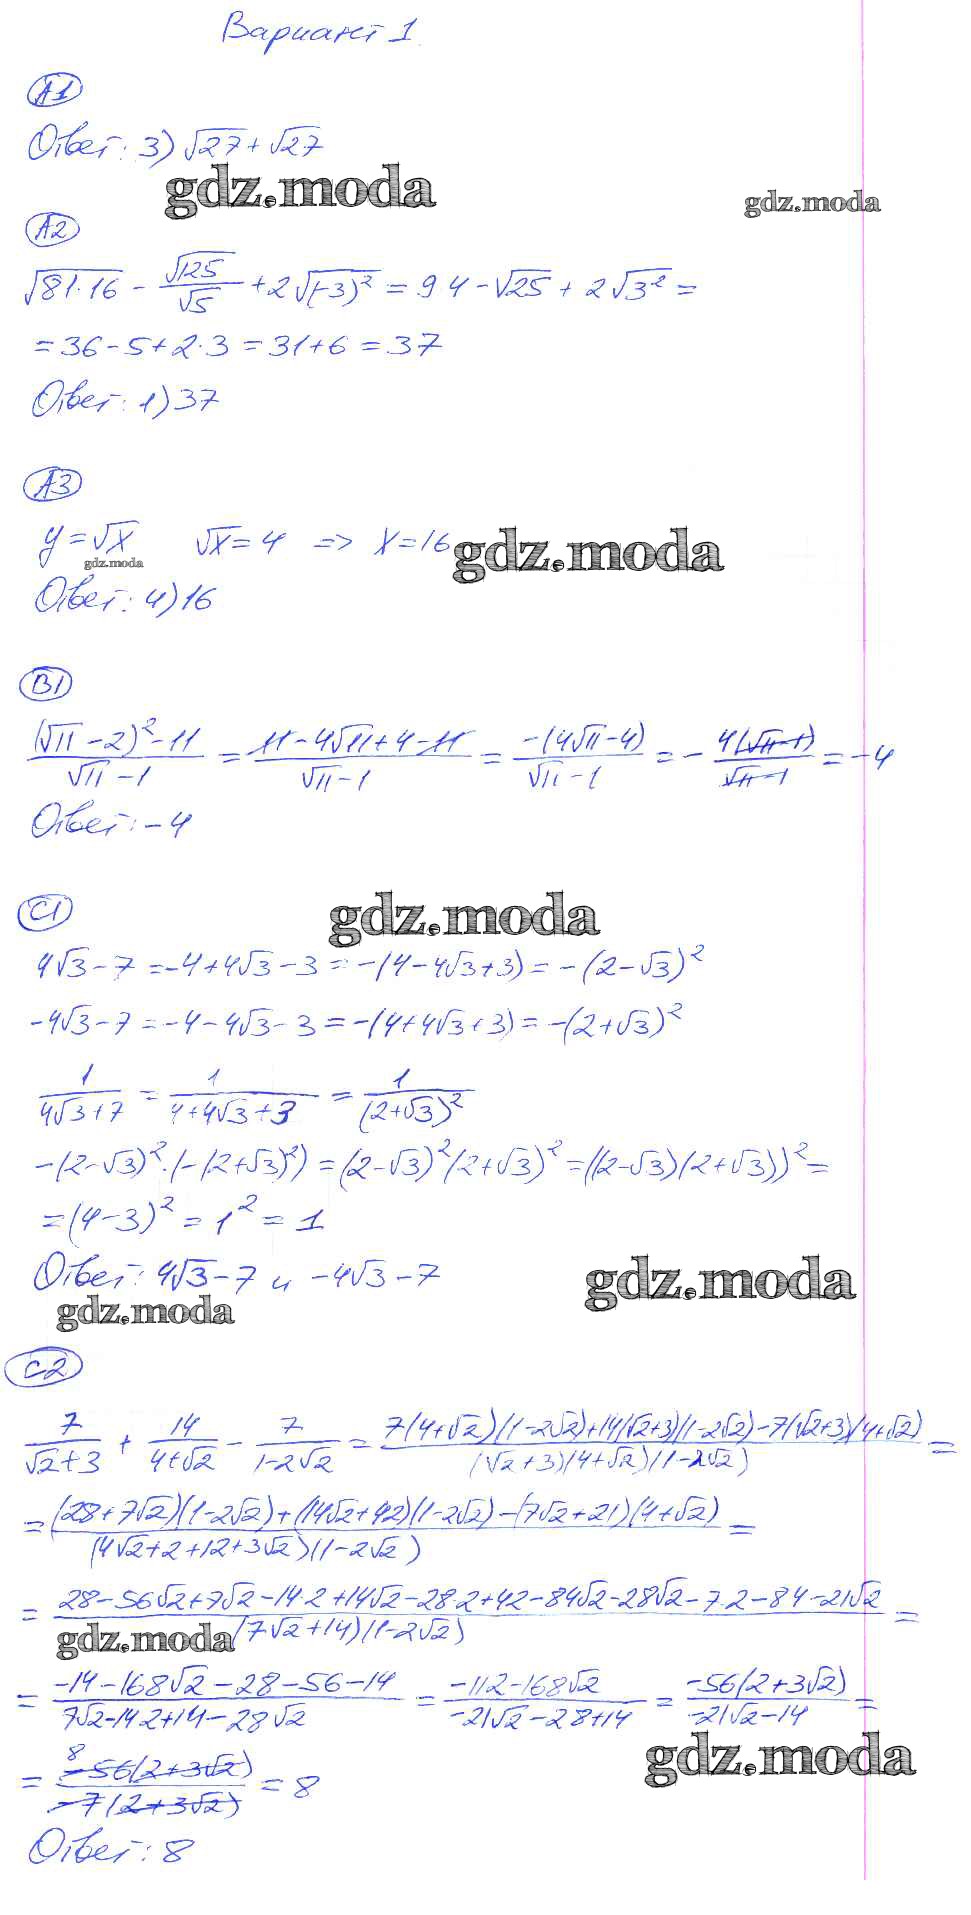 Вариант 1
А1
Ответ: 3) √27 + √27
gdz.moda
gdz.moda
А2
√81·16 - √125/√5 + 2√(-3)² = 9 4 - √25 + 2√3² =
= 36 - 5 + 2·3 = 31 + 6 = 37
Ответ: 1) 37
А3
y = √x √x = 4 => x = 16
gdz.moda
gdz.moda
Ответ: 4) 16
В1
((√11 - 2)² - 11)/(√11 - 1) = (11 - 4√11 + 4 - 11)/(√11 - 1) = -(4√11 - 4)/(√11 - 1) = - 4(√11 - 1)/(√11 - 1) = -4
Ответ: -4
С1
gdz.moda
4√3 - 7 = -4 + 4√3 - 3 = -(4 - 4√3 + 3) = -(2 - √3)²
-4√3 - 7 = -4 - 4√3 - 3 = -(4 + 4√3 + 3) = -(2 + √3)²
1/(4√3 + 7) = 1/(4 + 4√3 + 3) = 1/(2 + √3)²
-(2 - √3)²·(-(2 + √3)²) = (2 - √3)²(2 + √3)² = ((2 - √3)(2 + √3))² =
= (4 - 3)² = 1² = 1
Ответ: 4√3 - 7 и -4√3 - 7
gdz.moda
gdz.moda
С2
7/(√2 + 3) + 14/(4 + √2) - 7/(1 - 2√2) = (7(4 + √2)(1 - 2√2) + 14(√2 + 3)(1 - 2√2) - 7(√2 + 3)(4 + √2))/((√2 + 3)(4 + √2)(1 - 2√2)) =
= ((28 + 7√2)(1 - 2√2) + (14√2 + 42)(1 - 2√2) - (7√2 + 21)(4 + √2))/((4√2 + 2 + 12 + 3√2)(1 - 2√2)) =
= (28 - 56√2 + 7√2 - 14·2 + 14√2 - 28·2 + 42 - 84√2 - 28√2 - 7·2 - 84 - 21√2)/((7√2 + 14)(1 - 2√2)) =
gdz.moda
= (-14 - 168√2 - 28 - 56 - 14)/(7√2 - 14·2 + 14 - 28√2) = (-112 - 168√2)/(-21√2 - 28 + 14) = -56(2 + 3√2)/(-21√2 - 14) =
gdz.moda
8
= -56(2 + 3√2)/(-7(2 + 3√2)) = 8
Ответ: 8